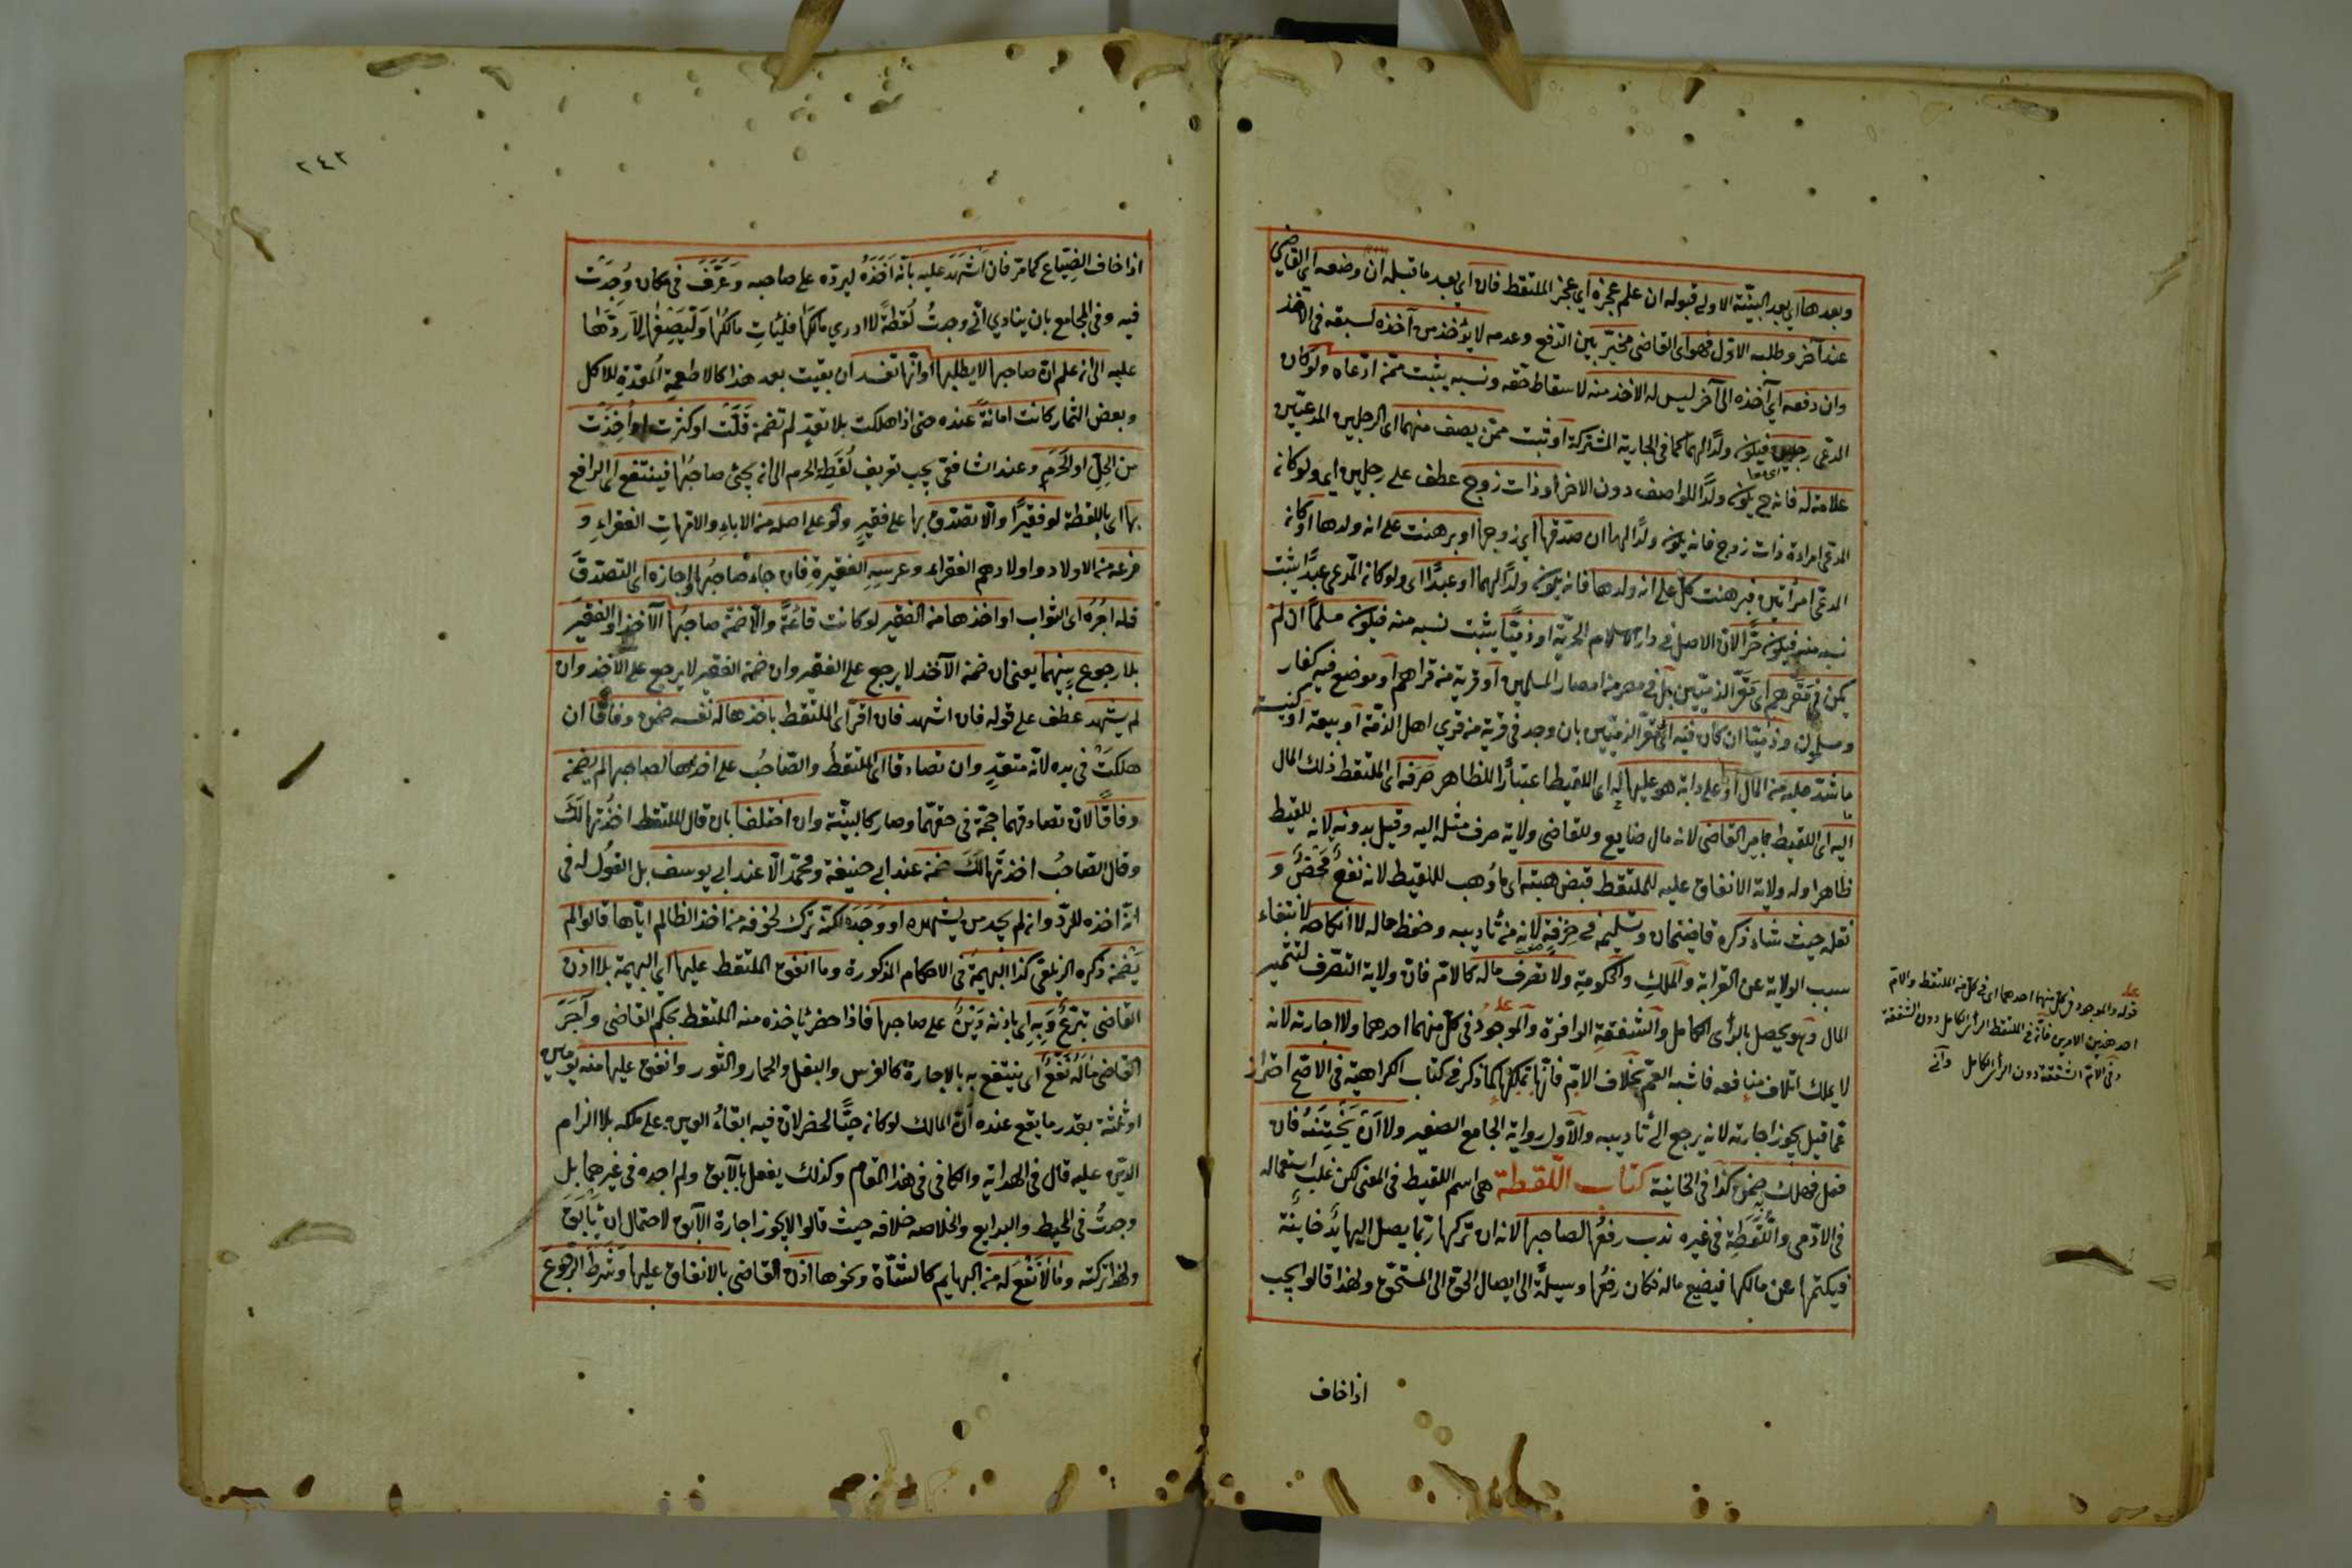 وبعدها اي بعد البينة الاولى قبوله ان علم عجزه اي عجز الملتقط فان اي بعد ما قبله ان وضعه اي القاضي
عند آخر وطلبه الاول فهو اي القاضي مخير بين الدفع وعدمه لا يؤخذ من آخذه لسبقه في الاخذ
وان دفعه اي آخذه الى آخر ليس له الاخذ منه لاسقاط حقه ونسبه يثبت ممن ادعاه ولو كان
المدعي رجلين فيكون ولدا لهما كما في الجارية المشتركة او ثبت ممن يصف منهما اي الرجلين المدعيين
علامة له فانه ح يكون ولدا للواصف دون الاخر او ذات زوج عطف على رجلين اي ولو كانه
المدعي امراءة ذات زوج فانه يكون ولدا لهما ان صدقها اي زوجها او برهنت على انه ولدها او كانه
المدعي امرأتين فبرهنت كل على انه ولدها فانه يكون ولدا لهما او عبدا اي ولو كانه المدعي عبدا يثبت
نسبه منه فيكون حرا لان الاصل في دار الاسلام الحرية او ذميا يثبت نسبه منه فيكون مسلما ان لم
يكن في مقرهم اي مقر الذميين بل في مصر من امصار المسلمين او قرية من قراهم او موضع فيه كفار
ومسلمون وذميا ان كان فيه اي مقر الذميين بان وجد في قرية من قرى اهل الذمة او بيعة او كنيسة
ما شد عليه من المال او على دابة هو عليها له اي اللقيط اعتبارا للظاهر صرفه اي الملتقط ذلك المال
اليه اي اللقيط بامر القاضي لانه مال ضايع وللقاضي ولاية صرف مثله اليه وقيل بدونه لانه للقيط
ظاهرا وله ولاية الانفاق عليه للملتقط قبض هبته اي ما وهب للقيط لانه نفع محض و
نقله حيث شاء ذكره قاضيخان وتسليمه في حرفة لانه من تأديبه وحفظ حاله لا انكاحه لانتفاء
سبب الولاية عن القرابة والملك والحكومة ولا تصرف ماله كالام فان ولاية التصرف لتثمير
المال وهو يحصل بالرأى الكامل والشفقة الوافرة والموجود في كل منهما احدهما ولا اجارته لانه
لا يملك اتلاف منافعه فاشبه العم بخلاف الام فانها تملكها كما ذكر في كتاب الكراهية في الاصح احتراز
عما قيل يجوز اجارته لانه يرجع الى تأديبه والاول رواية الجامع الصغير ولا ان يختنه فان
فعل فهلك ضمن كذا في الخانية كتاب اللقطة هي اسم اللقيط في المعنى لكن غلب استعماله
في الادمي واللقطة في غيره ندب رفعها لصاحبها لانه ان تركها ربما يصل اليها يد خائنة
فيكتمها عن مالكها فيضيع ماله فكان رفعها وسيلة الى ايصال الحق الى المستحق ولهذا قالوا يجب
اذا خاف
قوله والموجود في كل منهما احدهما اي في كل من الملتقط والام
احد هذين الامرين فانه في الملتقط الرأى الكامل دون الشفقة
وفي الام الشفقة دون الرأى الكامل
٢٤٢
اذا خاف الضياع كما مر فان اشهد عليه بانه اخذه ليرده على صاحبه وعرف في مكان وجدت
فيه وفي المجامع بان ينادي اني وجدت لقطة لا ادري مالكها فليأت مالكها وليصفها لاردها
عليه الى ان علم ان صاحبها لا يطلبها او انها تفسد ان بقيت بعد هذا كالاطعمة المعدة للاكل
وبعض الثمار كانت امانة عنده حتى اذا هلكت بلا تعد لم تضمن قلت او كثرت او اخذت
من الحل او الحرم وعند الشافعي يجب تعريف لقطة الحرم الى ان يجئ صاحبها فينتفع اي الرافع
بها اي باللقطة لو فقيرا والا تصدق بها على فقير ولو على اصله من الاباء والامهات الفقراء و
فرعه من الاولاد واولادهم الفقراء وعرسه الفقيرة فان جاء صاحبها واجازه اي التصدق
فله اجره اي الثواب او اخذها من الفقير لو كانت قائمة والا ضمن صاحبها الآخذ او الفقير
بلا رجوع بينهما يعني ان ضمن الآخذ لا يرجع على الفقير وان ضمن الفقير لا يرجع على الآخذ وان
لم يشهد عطف على قوله فان اشهد فان اقر اي الملتقط باخذها لنفسه ضمن وفاقا ان
هلكت في يده لانه متعد وان تصادقا اي الملتقط والصاحب على اخذها لصاحبها لم يضمن
وفاقا لان تصادقهما حجة في حقهما وصار كالبينة وان اختلفا بان قال الملتقط اخذتها لك
وقال الصاحب اخذتها لك ضمن عند ابي حنيفة ومحمد لا عند ابي يوسف بل القول له في
انه اخذه للرد وانه لم يجد من يشهده او وجده لكنه ترك لخوفه من اخذ الظالم اياها قالوا لم
يضمن ذكره الزيلعي كذا البهيمة في الاحكام المذكورة وما انفق الملتقط عليها اي البهيمة بلا اذن
القاضي تبرع وبه اي باذنه دين على صاحبها فاذا حضر يأخذه منه الملتقط بحكم القاضي وآجر
القاضي ما له نفع اي ينتفع به بالاجارة كالفرس والبغل والحمار والثور وانفق عليها منه يومين
او ثلثة بقدر ما يقع عنده ان المالك لو كانه حيا لحضر لان فيه ابقاء العين على ملكه بلا الزام
الدين عليه قال في الهداية والكافي في هذا المقام وكذلك يفعل بالآبق ولم اجده في غيرهما بل
وجدت في المحيط والبدايع والخلاصه خلافه حيث قالوا لا يجوز اجارة الآبق لاحتمال ان يأبق
ولهذا تركته وما لا نفع له من البهايم كالشاة ونحوها اذن القاضي بالانفاق عليها وشرط الرجوع